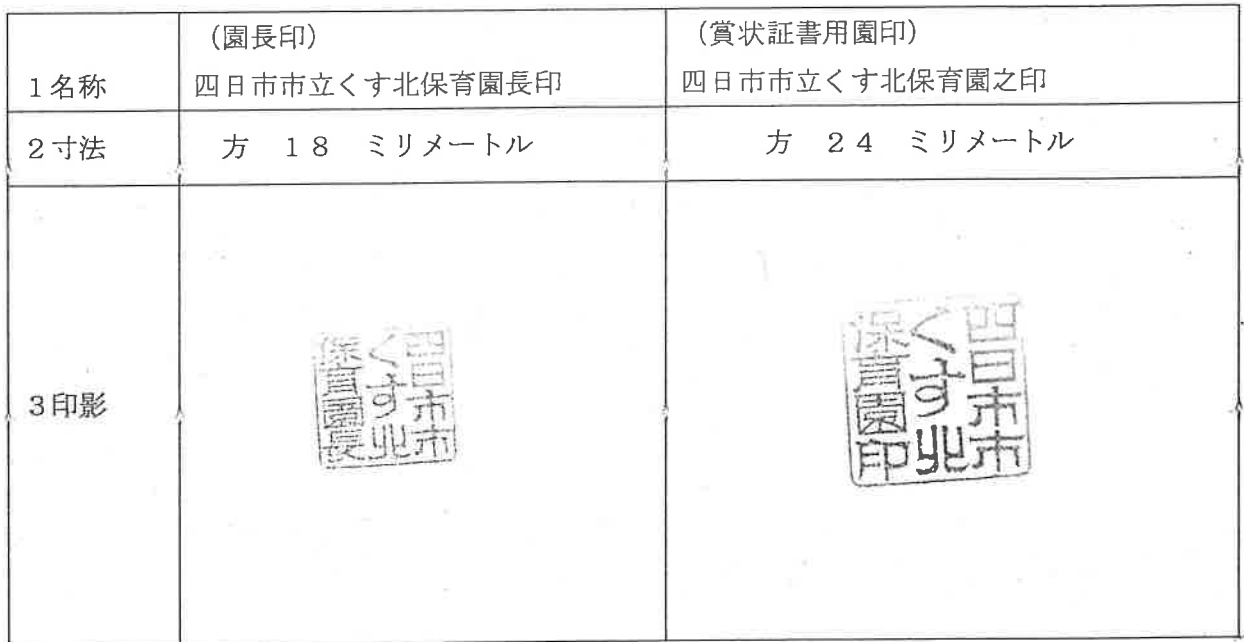 1名称
(園長印)
四日市市立くす北保育園長印
(賞状証書用園印)
四日市市立くす北保育園之印
2寸法
方 18 ミリメートル
方 24 ミリメートル
3印影
四日市市
くす北
保育園長
四日市市
くす北
保育園印